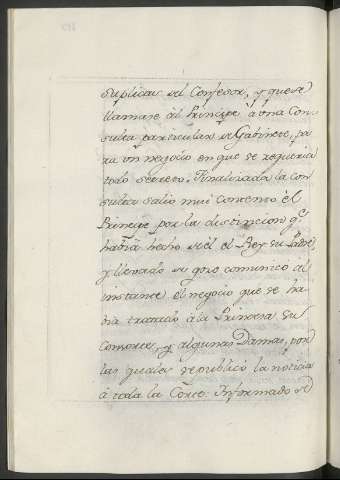 suplicas del Confesor, y que se
llamase al Principe à una Con
sulta particular de Gabinete, pa
ra un negocio en que se requeria
todo secreto. Finalizada la con
sulta salio mui contento el
Principe por la distincion q.e
habia hecho de él el Rey su Padre
y llevado de gozo comunicó al
instante el negocio que se ha
bia tratado à la Princesa su
Consorte, y algunas Damas, por
las quales se publicó la noticia
à toda la Corte. Informado de